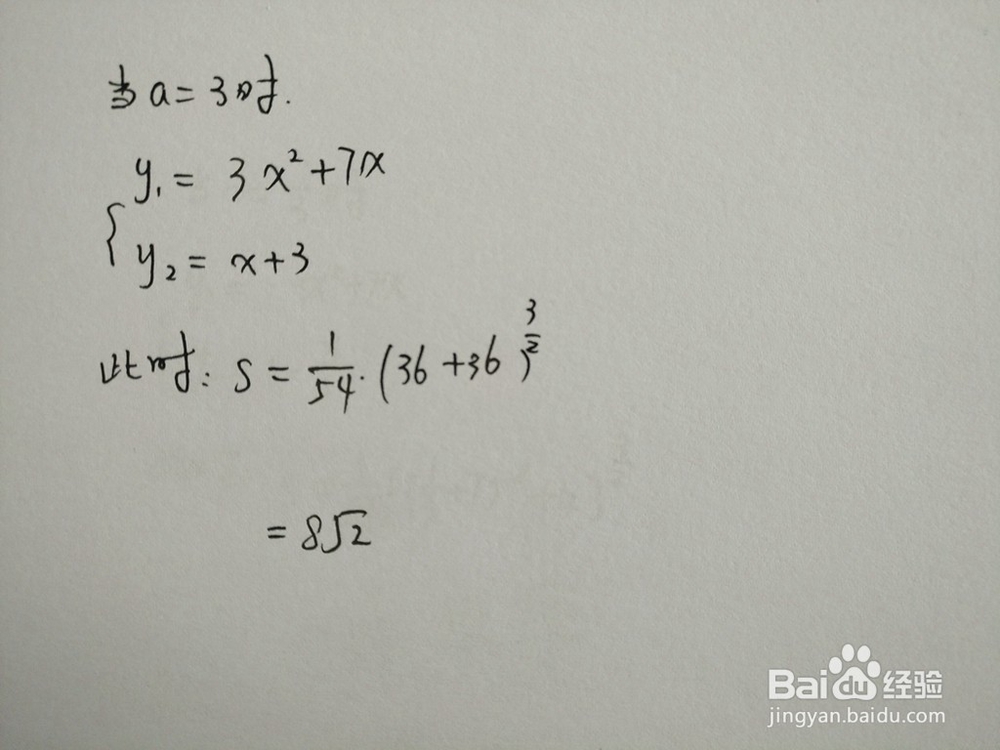 当a=3时.
y₁ = 3x²+7x
{ y₂ = x+3
此时: S = 1/54·(36+36)^(3/2)
= 8√2
Baidu 经验
jingyan.baidu.com